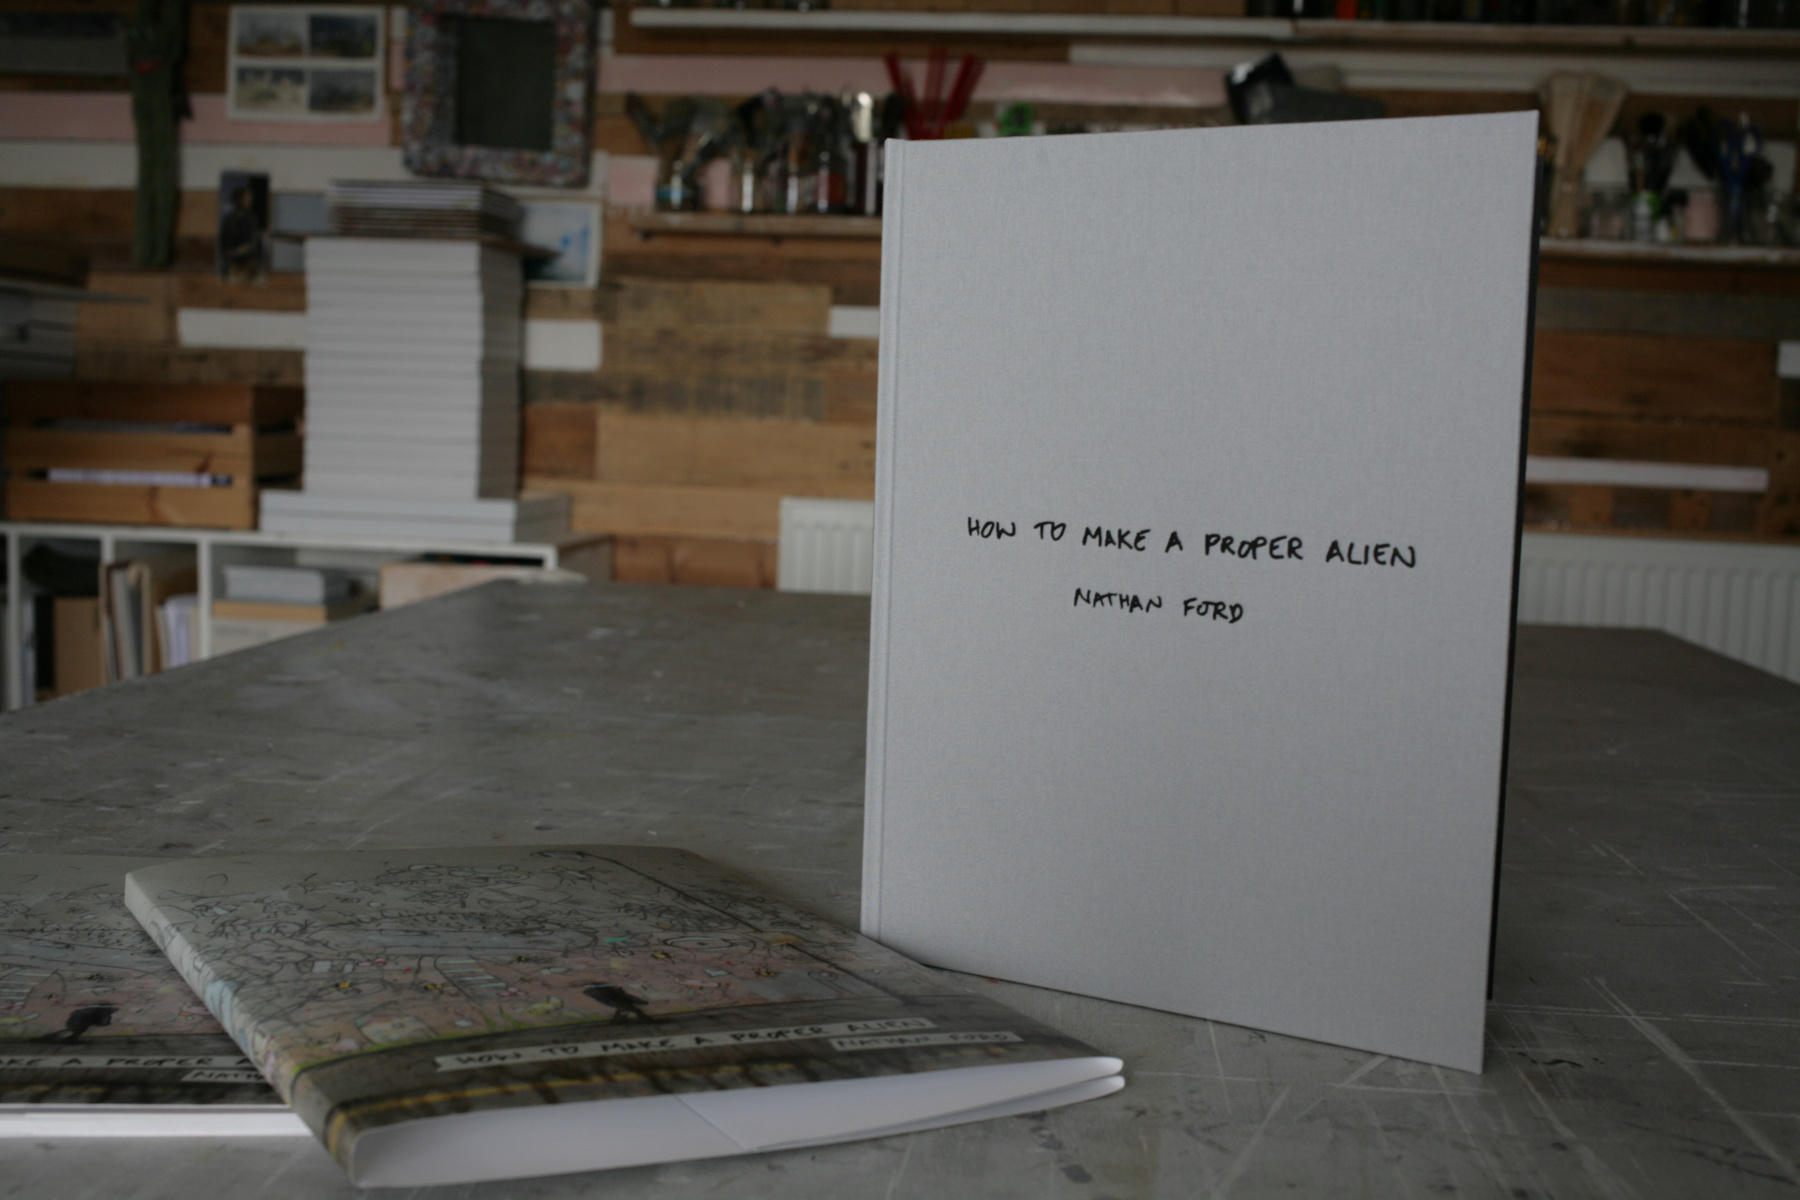 HOW TO MAKE A PROPER ALIEN
NATHAN FORD
HOW TO MAKE A PROPER ALIEN
NATHAN FORD
MAKE A PROPER